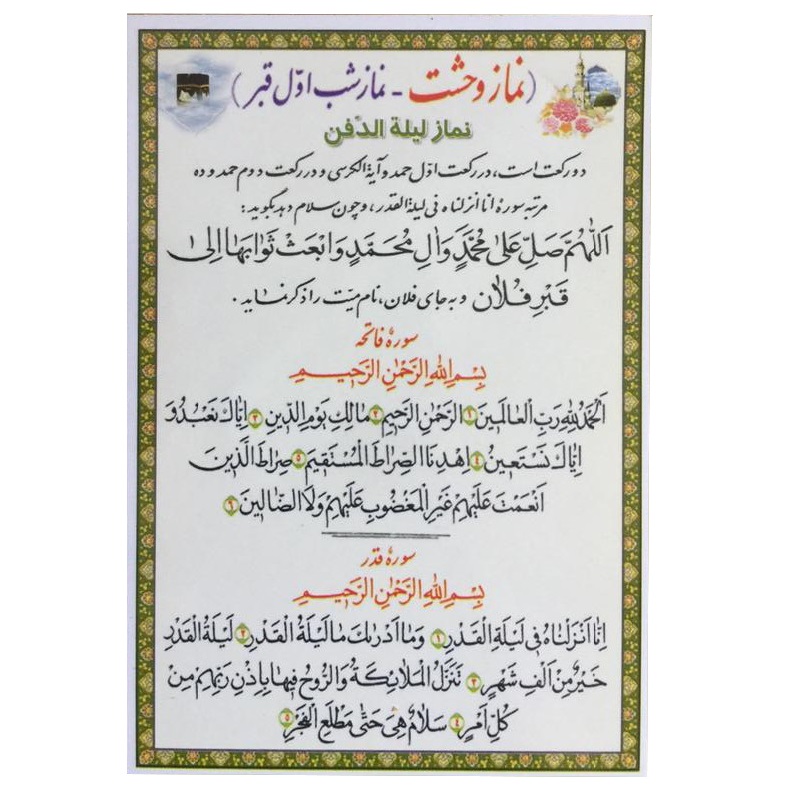 (نماز وحشت - نماز شب اوّل قبر)
نماز لیلة الدّفن
دو رکعت است، در رکعت اوّل حمد و آیة الکرسی و در رکعت دوم حمد و ده
مرتبه سورهٔ انا انزلناه فی لیلة القدر، و چون سلام دهد بگوید:
اَللّٰهُمَّ صَلِّ عَلىٰ مُحَمَّدٍ وَاٰلِ مُحَمَّدٍ وَابْعَثْ ثَوابَهَا اِلىٰ
قَبْرِ فُلاٰن و به جای فلان، نام میّت را ذکر نماید.
سورهٔ فاتحه
بِسْمِ اللهِ الرَّحْمٰنِ الرَّحِيمِ
اَلْحَمْدُ لِلّٰهِ رَبِّ الْعٰالَمِينَ ۱ اَلرَّحْمٰنِ الرَّحِيمِ ۲ مٰالِكِ يَوْمِ الدِّينِ ۳ اِيّٰاكَ نَعْبُدُ وَ
اِيّٰاكَ نَسْتَعِينُ ۴ اِهْدِنَا الصِّرٰاطَ الْمُسْتَقِيمَ ۵ صِرٰاطَ الَّذِينَ
اَنْعَمْتَ عَلَيْهِمْ غَيْرِ الْمَغْضُوبِ عَلَيْهِمْ وَلَا الضّٰالِّينَ ۶
سورهٔ قدر
بِسْمِ اللهِ الرَّحْمٰنِ الرَّحِيمِ
اِنّٰا اَنْزَلْنٰاهُ فِي لَيْلَةِ الْقَدْرِ ۱ وَمٰا اَدْرٰىكَ مٰا لَيْلَةُ الْقَدْرِ ۲ لَيْلَةُ الْقَدْرِ
خَيْرٌ مِنْ اَلْفِ شَهْرٍ ۳ تَنَزَّلُ الْمَلاٰئِكَةُ وَالرُّوحُ فِيهٰا بِاِذْنِ رَبِّهِمْ مِنْ
كُلِّ اَمْرٍ ۴ سَلاٰمٌ هِيَ حَتّٰى مَطْلَعِ الْفَجْرِ ۵